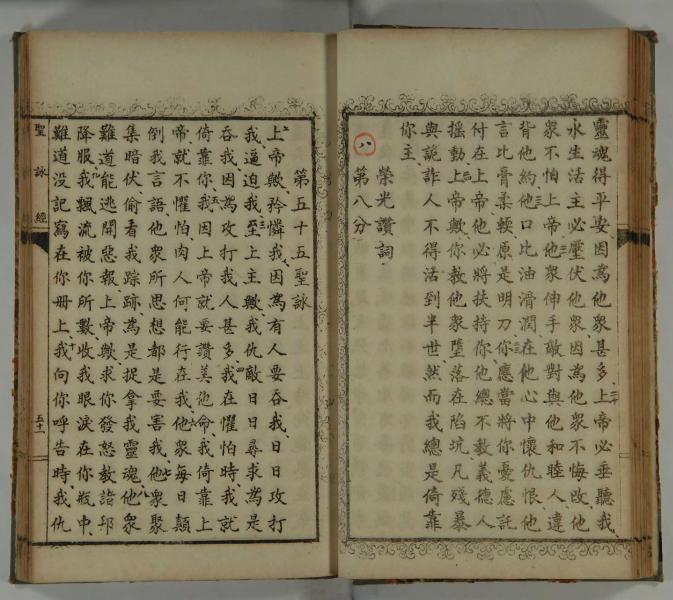 靈魂得平安、因爲他衆甚多、上帝必垂聽我、
永生活主必壓伏他衆、因爲他衆不悔改、他
衆不怕上帝、他衆伸手敵對與他和睦人、違
背他約、他口比油滑潤、在他心中懷仇恨、他
言比膏柔輭、原是明刀、你應當將你憂慮託
付在上帝、他必將扶持你、他總不教義德人
摇動、上帝歟、你教他衆墮落在陷坑、凡殘暴
與詭詐人不得活到半世、然而我總是倚靠
你主、
榮光讚詞
八
第八分
第五十五聖詠
上帝歟、矜憐我、因爲有人要吞我、日日攻打
我、逼迫我、至上主歟、我仇敵日日尋求爲是
吞我、因爲攻打我人甚多、我在懼怕時、我就
倚靠你、我因上帝就要讚美他命、我倚靠上
帝、就不懼怕、肉人何能行在我、他衆每日顛
倒我言語、他衆所思想都是要害我、他衆聚
集暗伏、偷看我踪跡、爲是捉拿我靈魂、他衆
難道能逃開惡報、上帝歟、求你發怒教諸邦
降服、我飄流被你所數、收我眼淚在你瓶中、
難道没記寫在你册上、我向你呼告時、我仇
聖詠經
五十一